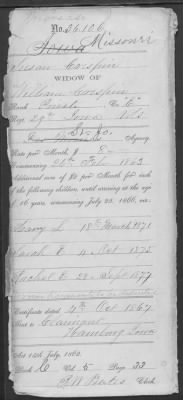 No. 36.106
Iowa Missouri
Susan Crispin
WIDOW OF
William Crispin
Rank Private Co. E
Regt 29th Iowa Vols
St. Lo. Agency
Rate per Month, $ 8
Commencing 21st Feb 1863
Additional sum of $2 per Month for each
of the following children, until arriving at the age
of 16 years, commencing July 25, 1866, viz:
18th March 1871
Sarah E 4 Oct 1875
Rachel E 28 Sept 1877
Certificate dated 4th Oct 1867
Sent to Claimant
Hamburg Iowa
Act 14th July, 1862.
Book C Vol 5 Page 33
Clerk